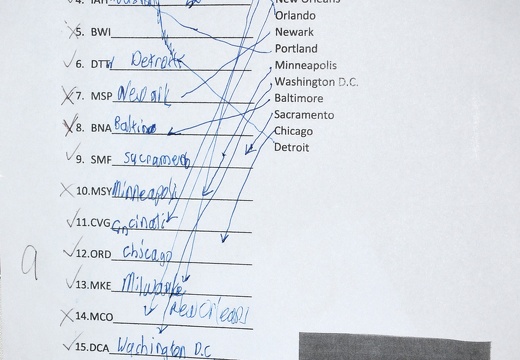 4. IAH
New Orleans
Orlando
5. BWI
Newark
Portland
6. DTW Detroit
Minneapolis
Washington D.C.
7. MSP Newark
Baltimore
Sacramento
8. BNA Baltimore
Chicago
Detroit
9. SMF Sycramento
10. MSY Minneapolis
11. CVG Cincinati
12. ORD Chicago
9
13. MKE Milwaukee
New Orleans
14. MCO
15. DCA Wachington D.C